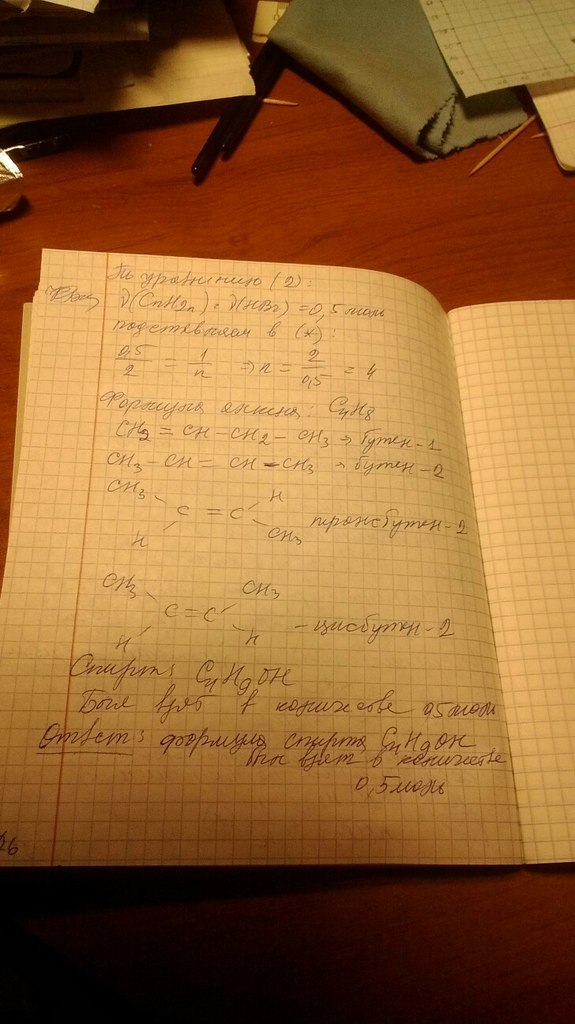 По уравнению (2):
ν(CnH2n) = ν(HBr) = 0,5 моль
подставляем в (*):
0,5/2 = 1/n ⇒ n = 2/0,5 = 4
Формула алкена: C4H8
CH2 = CH - CH2 - CH3 → бутен-1
CH3 - CH = CH - CH3 → бутен-2
CH3 H
C = C трансбутен-2
H CH3
CH3 CH3
C = C - цисбутен-2
H H
Спирт: C4H9OH
Был взят в количестве 0,5 моль
Ответ: формула спирта C4H9OH
был взят в количестве
0,5 моль
26